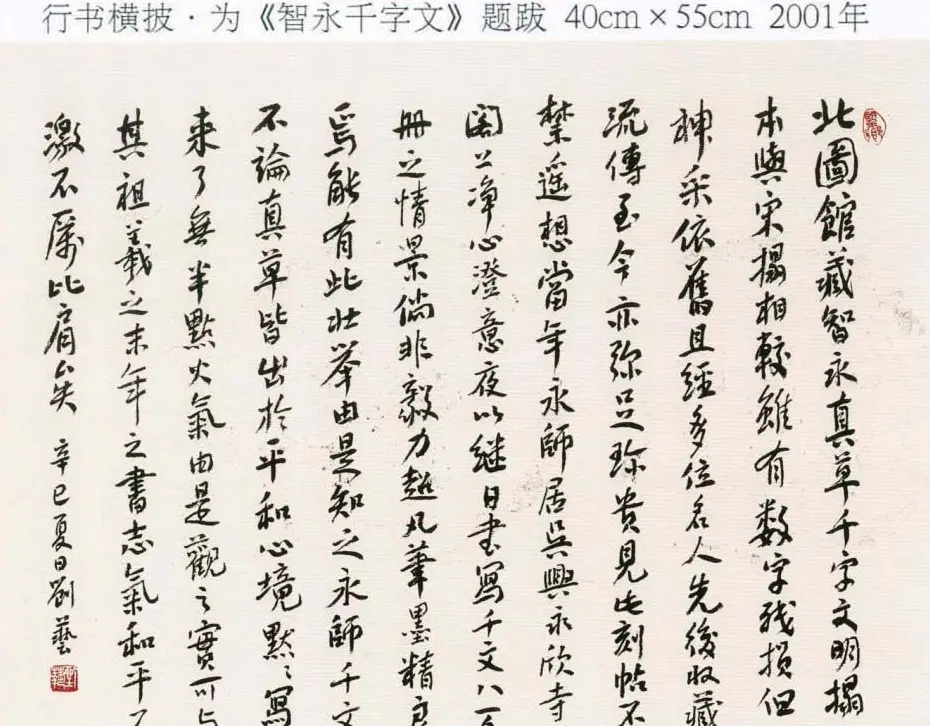 行书横披·为《智永千字文》题跋 40cm×55cm 2001年
北圖館藏智永真草千字文明搨
本與宋搨相較雖有数字残損但
神采依舊且經多位名人先後收藏
流傳至今亦弥足珍贵見此刻帖不
禁遥想當年永師居吳興永欣寺
閣上净心澄意夜以继日書寫千文八百
册之情景倘非毅力超凡筆墨精
焉能有此壮举由是知之永師千文
不論真草皆出於平和心境默默寫
来了無半點火氣由是觀之實可与
其祖羲之末年之書志氣和平不
激不厲比肩矣 辛巳夏日劉藝